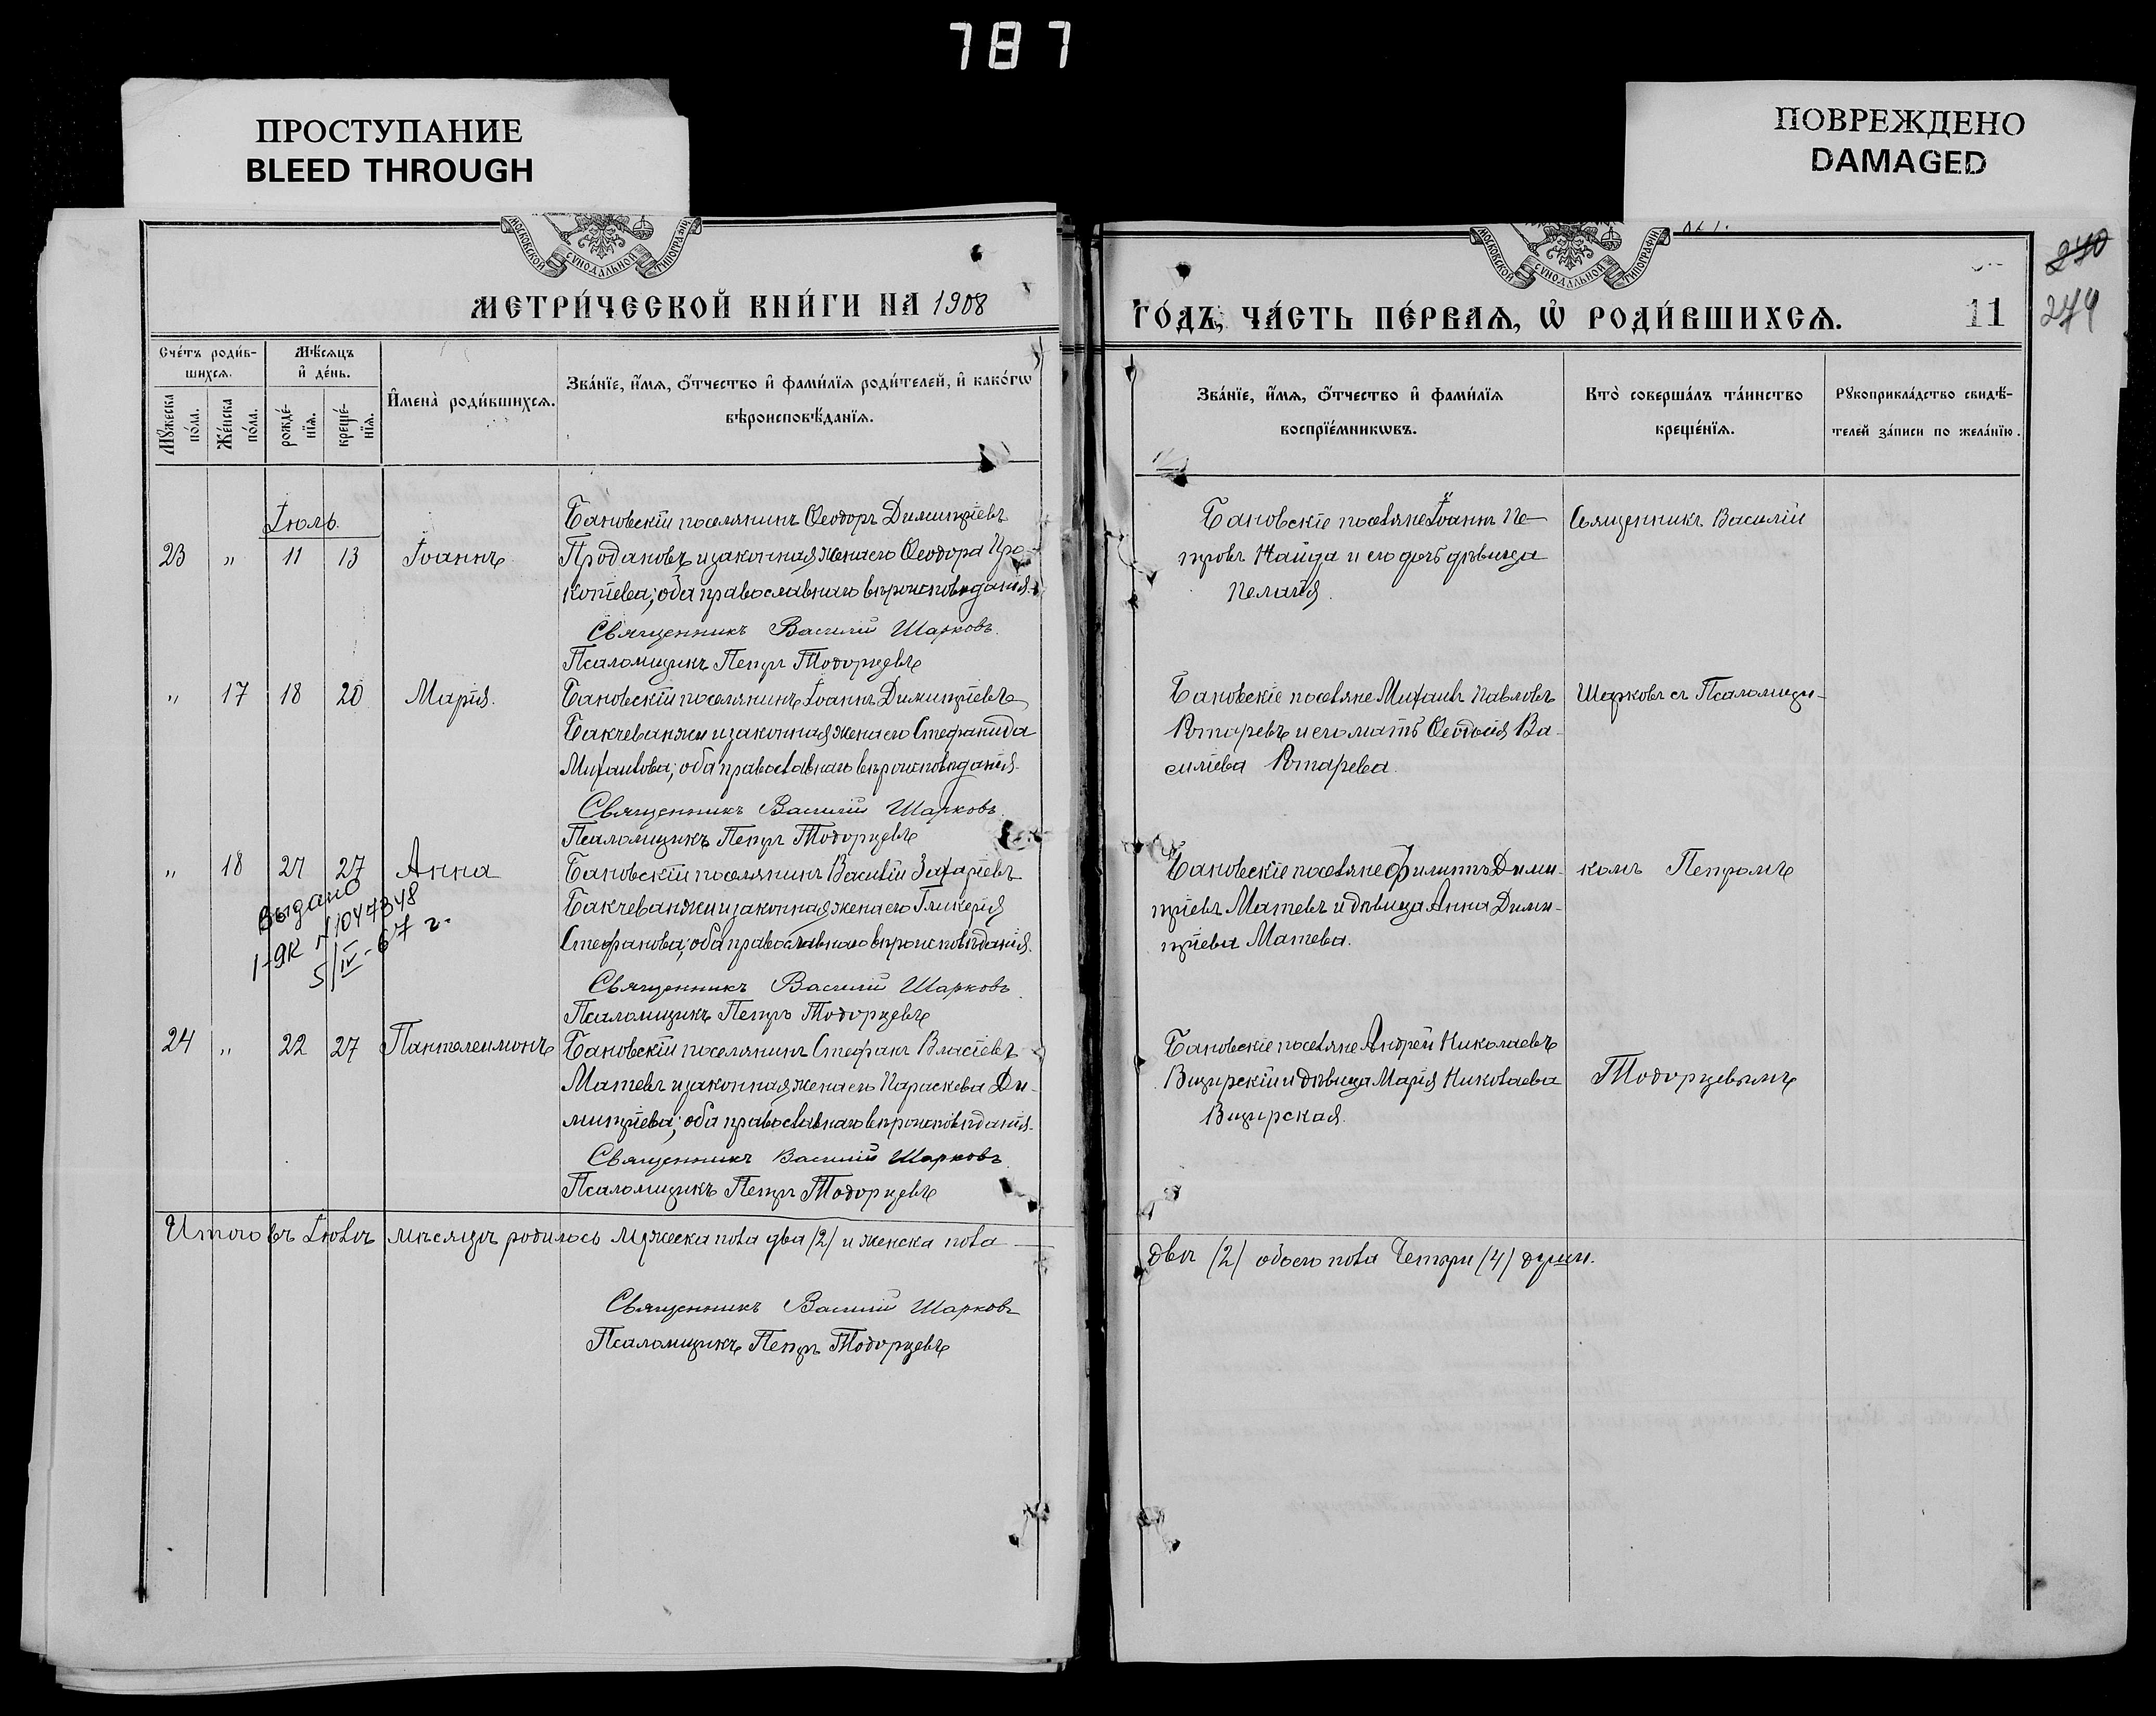 787
ПРОСТУПАНИЕ
BLEED THROUGH
ПОВРЕЖДЕНО
DAMAGED
МОСКОВСКОЙ СУНОДАЛЬНОЙ ТИПОГРАФІИ
МОСКОВСКОЙ СУНОДАЛЬНОЙ ТИПОГРАФІИ
270
274
МЕТРИ́ЧЕСКОЙ КНИ́ГИ НА 1908
ГО́ДЪ, ЧА́СТЬ ПЕ́РВАѦ, Ѡ҆ РОДИ́ВШИХСѦ.
11
Сче́тъ роди́в-
шихсѧ.
Мѣ́сѧцъ
и҆ де́нь.
Мꙋ́жеска
по́ла.
Же́нска
по́ла.
рожде́-
нїѧ.
креще́-
нїѧ.
И҆мена̀ роди́вшихсѧ.
Зва́нїе, и҆́мѧ, ѻ҆́тчество и҆ фами́лїѧ роди́телей, и҆ како́гѡ
вѣроисповѣ́данїѧ.
Зва́нїе, и҆́мѧ, ѻ҆́тчество и҆ фами́лїѧ
воспрїе́мникѡвъ.
Кто̀ соверша́лъ та́инство
креще́нїѧ.
Рꙋкоприкла́дство свидѣ́-
телей за́писи по жела́нїю.
Іюль.
23 " 11 13 Іоаннъ
Бановскій поселянинъ Ѳеодоръ Димитріевъ
Продановъ и законная жена его Ѳеодора Про-
копіева; оба православнаго вѣроисповѣданія.
Священникъ Василій Шарковъ.
Псаломщикъ Петръ Тодорцевъ
Бановскіе поселяне Іоаннъ Пе-
тровъ Найда и его дочь дѣвица
Пелагія.
Священникъ Василій
" 17 18 20 Марія.
Бановскій поселянинъ Іоаннъ Димитріевъ
Бакчеванжи и законная жена его Стефанида
Михаилова; оба православнаго вѣроисповѣданія.
Священникъ Василій Шарковъ.
Псаломщикъ Петръ Тодорцевъ
Бановскіе поселяне Михаилъ Павловъ
Ротаревъ и его мать Ѳеодосія Ва-
силіева Ротарева.
Шарковъ съ Псаломщи-
" 18 21 27 Анна
выдано
1-ЯК №1047348
5/IV-67 г.
Бановскій поселянинъ Василій Захаріевъ
Бакчеванжи и законная жена его Гликерія
Стефанова; оба православнаго вѣроисповѣданія.
Священникъ Василій Шарковъ.
Псаломщикъ Петръ Тодорцевъ
Бановскіе поселяне Филиппъ Дими-
тріевъ Матевъ и дѣвица Анна Дими-
тріева Матева.
комъ Петромъ
24 " 22 27 Пантелеимонъ
Бановскій поселянинъ Стефанъ Власіевъ
Матевъ и законная жена его Параскева Ди-
митріева; оба православнаго вѣроисповѣданія.
Священникъ Василій Шарковъ.
Псаломщикъ Петръ Тодорцевъ
Бановскіе поселяне Андрей Николаевъ
Визирскій и дѣвица Марія Николаева
Визирская.
Тодорцевымъ
Итого въ Іюлѣ мѣсяцѣ родилось мужеска пола два /2/ и женска пола
двѣ /2/ обоего пола четыри /4/ души.
Священникъ Василій Шарковъ
Псаломщикъ Петръ Тодорцевъ